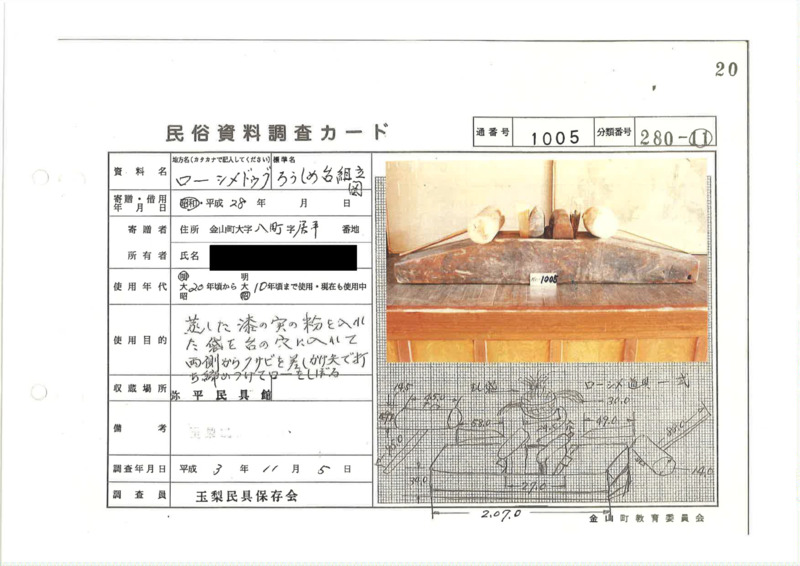 20
民俗資料調査カード
通番号 1005 分類番号 280-11
資料名 地方名(カタカナで記入してください) 標準名
ローシメドウグ ろうしめ台組立図
寄贈・借用年月日 昭和・平成 28年 月 日
寄贈者 住所 金山町大字 八町 字 居平 番地
所有者 氏名
使用年代 明大昭 20年頃から 明大昭 10年頃まで使用・現在も使用中
使用目的 蒸した漆の実の粉を入れ
た袋を台の穴に入れて
両側からクサビを差しかけ矢で打
ち締めつけてローをしぼる
収蔵場所 弥平民具館
備考
調査年月日 平成 3年 11月 5日
調査員 玉梨民具保存会
1005
ローシメ道具一式
14.5
45.0
30.0
58.0
49.0
88.0
14.0
27.0
30.0
2.07.0
金山町教育委員会